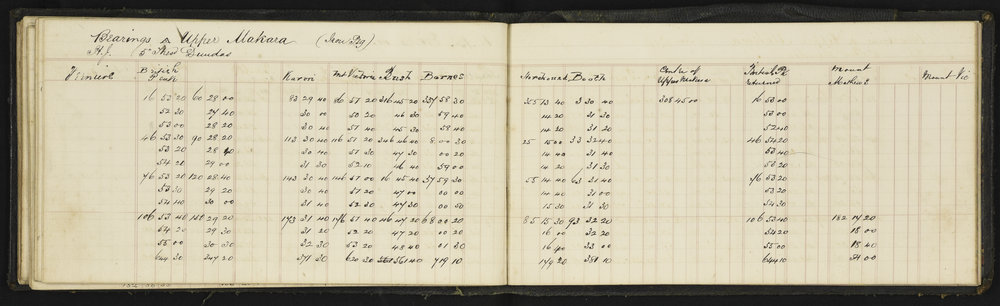 Bearings Upper Makara (Iron Peg)
H.J. 5" Theod Dundas
Verniers British Peak Karori Mt Victoria Bush Barnes
16 53 20 60 28 00 83 29 40 86 57 20 316 45 20 357 58 30
52 30 27 40 30 00 50 20 46 30 59 40
53 00 28 20 30 40 57 40 45 30 58 40
46 53 30 90 28 20 113 30 40 116 51 20 346 46 40 8 00 30
53 20 28 40 30 40 57 30 47 30 00 20
54 20 29 00 31 30 52 10 46 40 59 00
76 53 20 120 28 40 143 30 40 146 57 00 16 45 40 57 59 30
53 30 29 20 30 40 57 20 47 00 00 00
54 40 30 00 31 40 52 30 47 30 00 50
106 53 40 150 29 20 173 31 40 176 57 40 46 47 20 68 00 20
54 20 29 30 31 20 52 20 47 20 00 20
55 00 30 30 32 30 53 20 48 40 01 30
644 30 347 20 371 30 620 30 561 40 719 10
Booth Centre of Upper Makara Initial Pt returned Mount Mount Vic
355 13 40 3 30 40 308 45 00 16 53 00
14 20 31 30 53 00
14 20 31 30 52 40
25 15 00 33 32 40 46 54 20
14 40 31 40 53 40
14 20 31 30 53 20
55 14 40 63 31 40 76 53 20
14 40 31 00 53 20
15 30 31 30 54 30
85 15 30 93 32 20 106 53 40 182 17 20
16 00 32 20 54 20 18 00
16 40 33 00 55 00 18 40
179 20 381 10 644 10 54 00